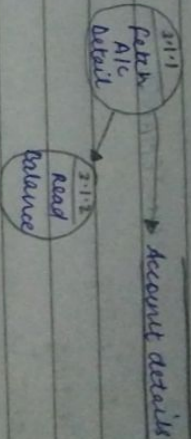 2.1.1
Fetch
A/C
Detail
Account details
2.1.2
Read
Balance